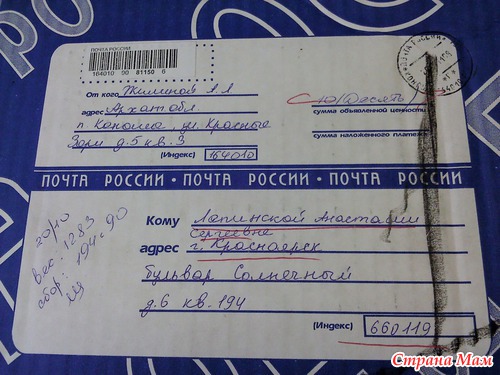 ПОЧТА РОССИИ
164010 90 81150 6
От кого Жилиной А.А
адрес Архат обл.
п. Коноша, ул. Красные
Зори д.5 кв.3
(Индекс) 164010
С 10 (Десять
сумма объявленной ценности
сумма наложенного платежа
ПОЧТА РОССИИ • ПОЧТА РОССИИ • ПОЧТА РОССИИ •
20/10
вес: 1283
сбор: 194-90
Кому Лапинской Анастасии
Сергеевне
адрес г. Красноярск
бульвар Солнечный
д.6 кв. 194
(Индекс) 660119
Страна Мам